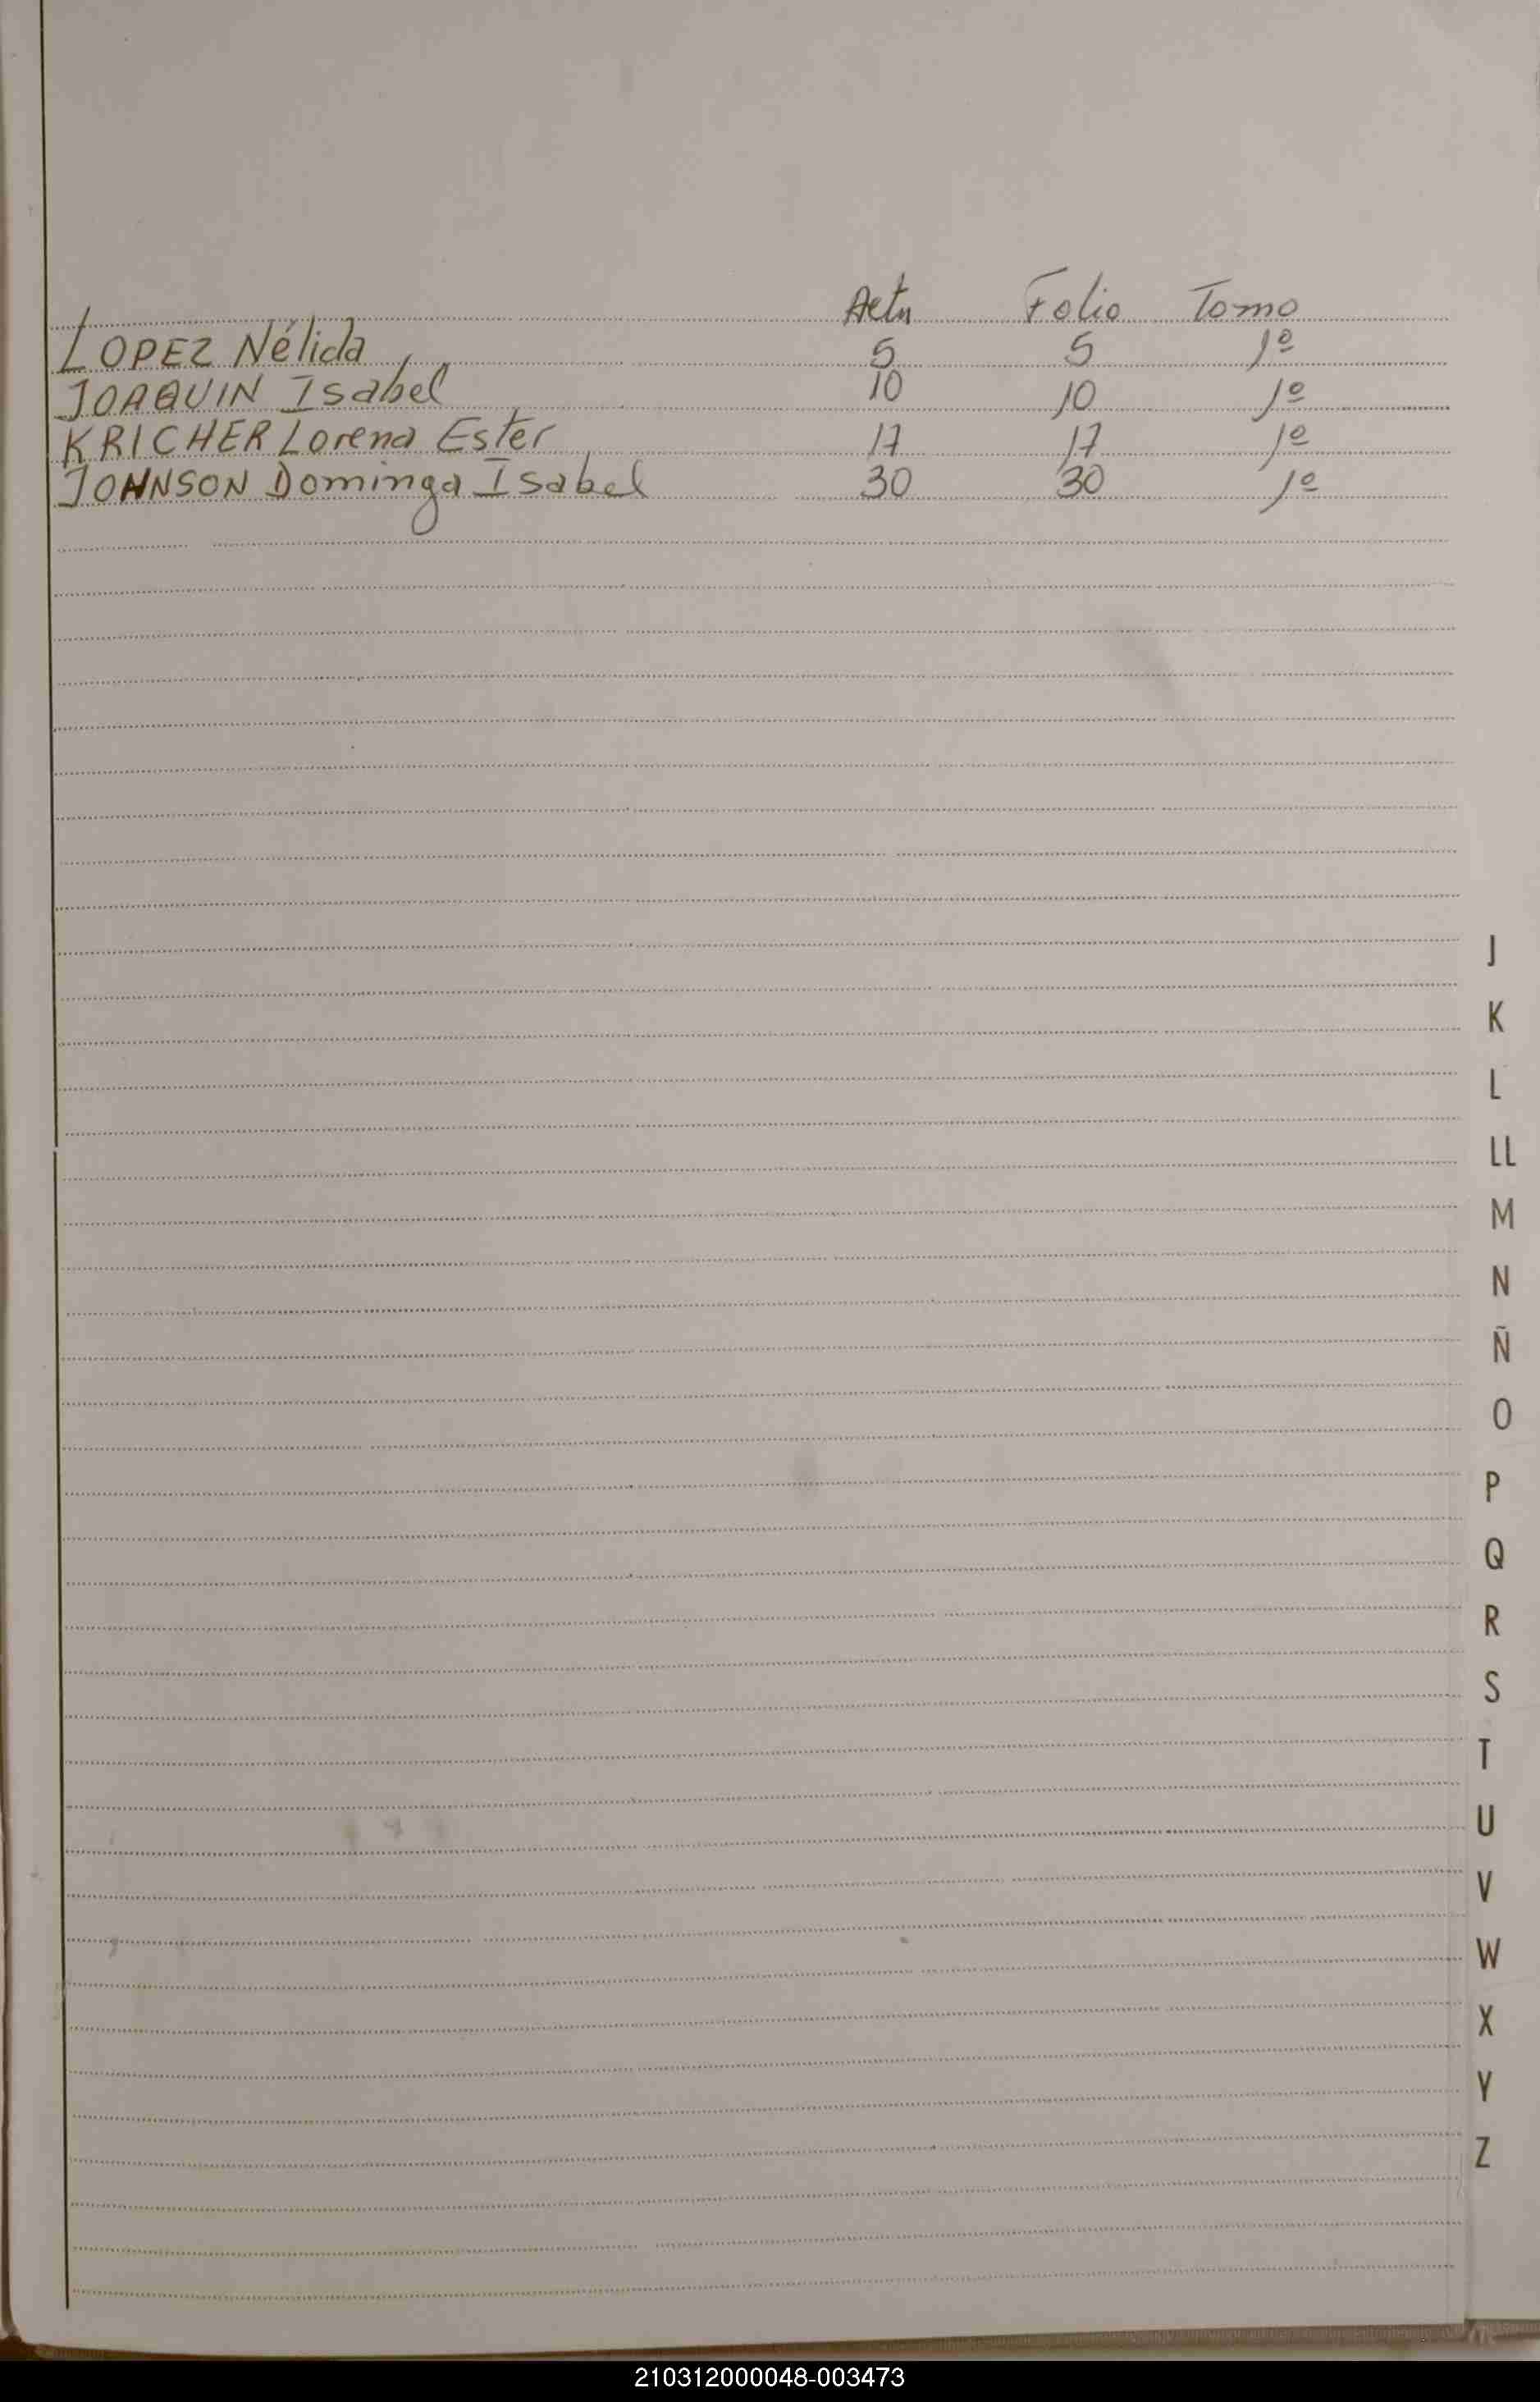 Acta Folio Tomo
LOPEZ Nélida 5 5 1º
JOAQUIN Isabel 10 10 1º
KRICHER Lorena Ester 17 17 1º
JOHNSON Dominga Isabel 30 30 1º
J
K
L
LL
M
N
Ñ
O
P
Q
R
S
T
U
V
W
X
Y
Z
210312000048-003473